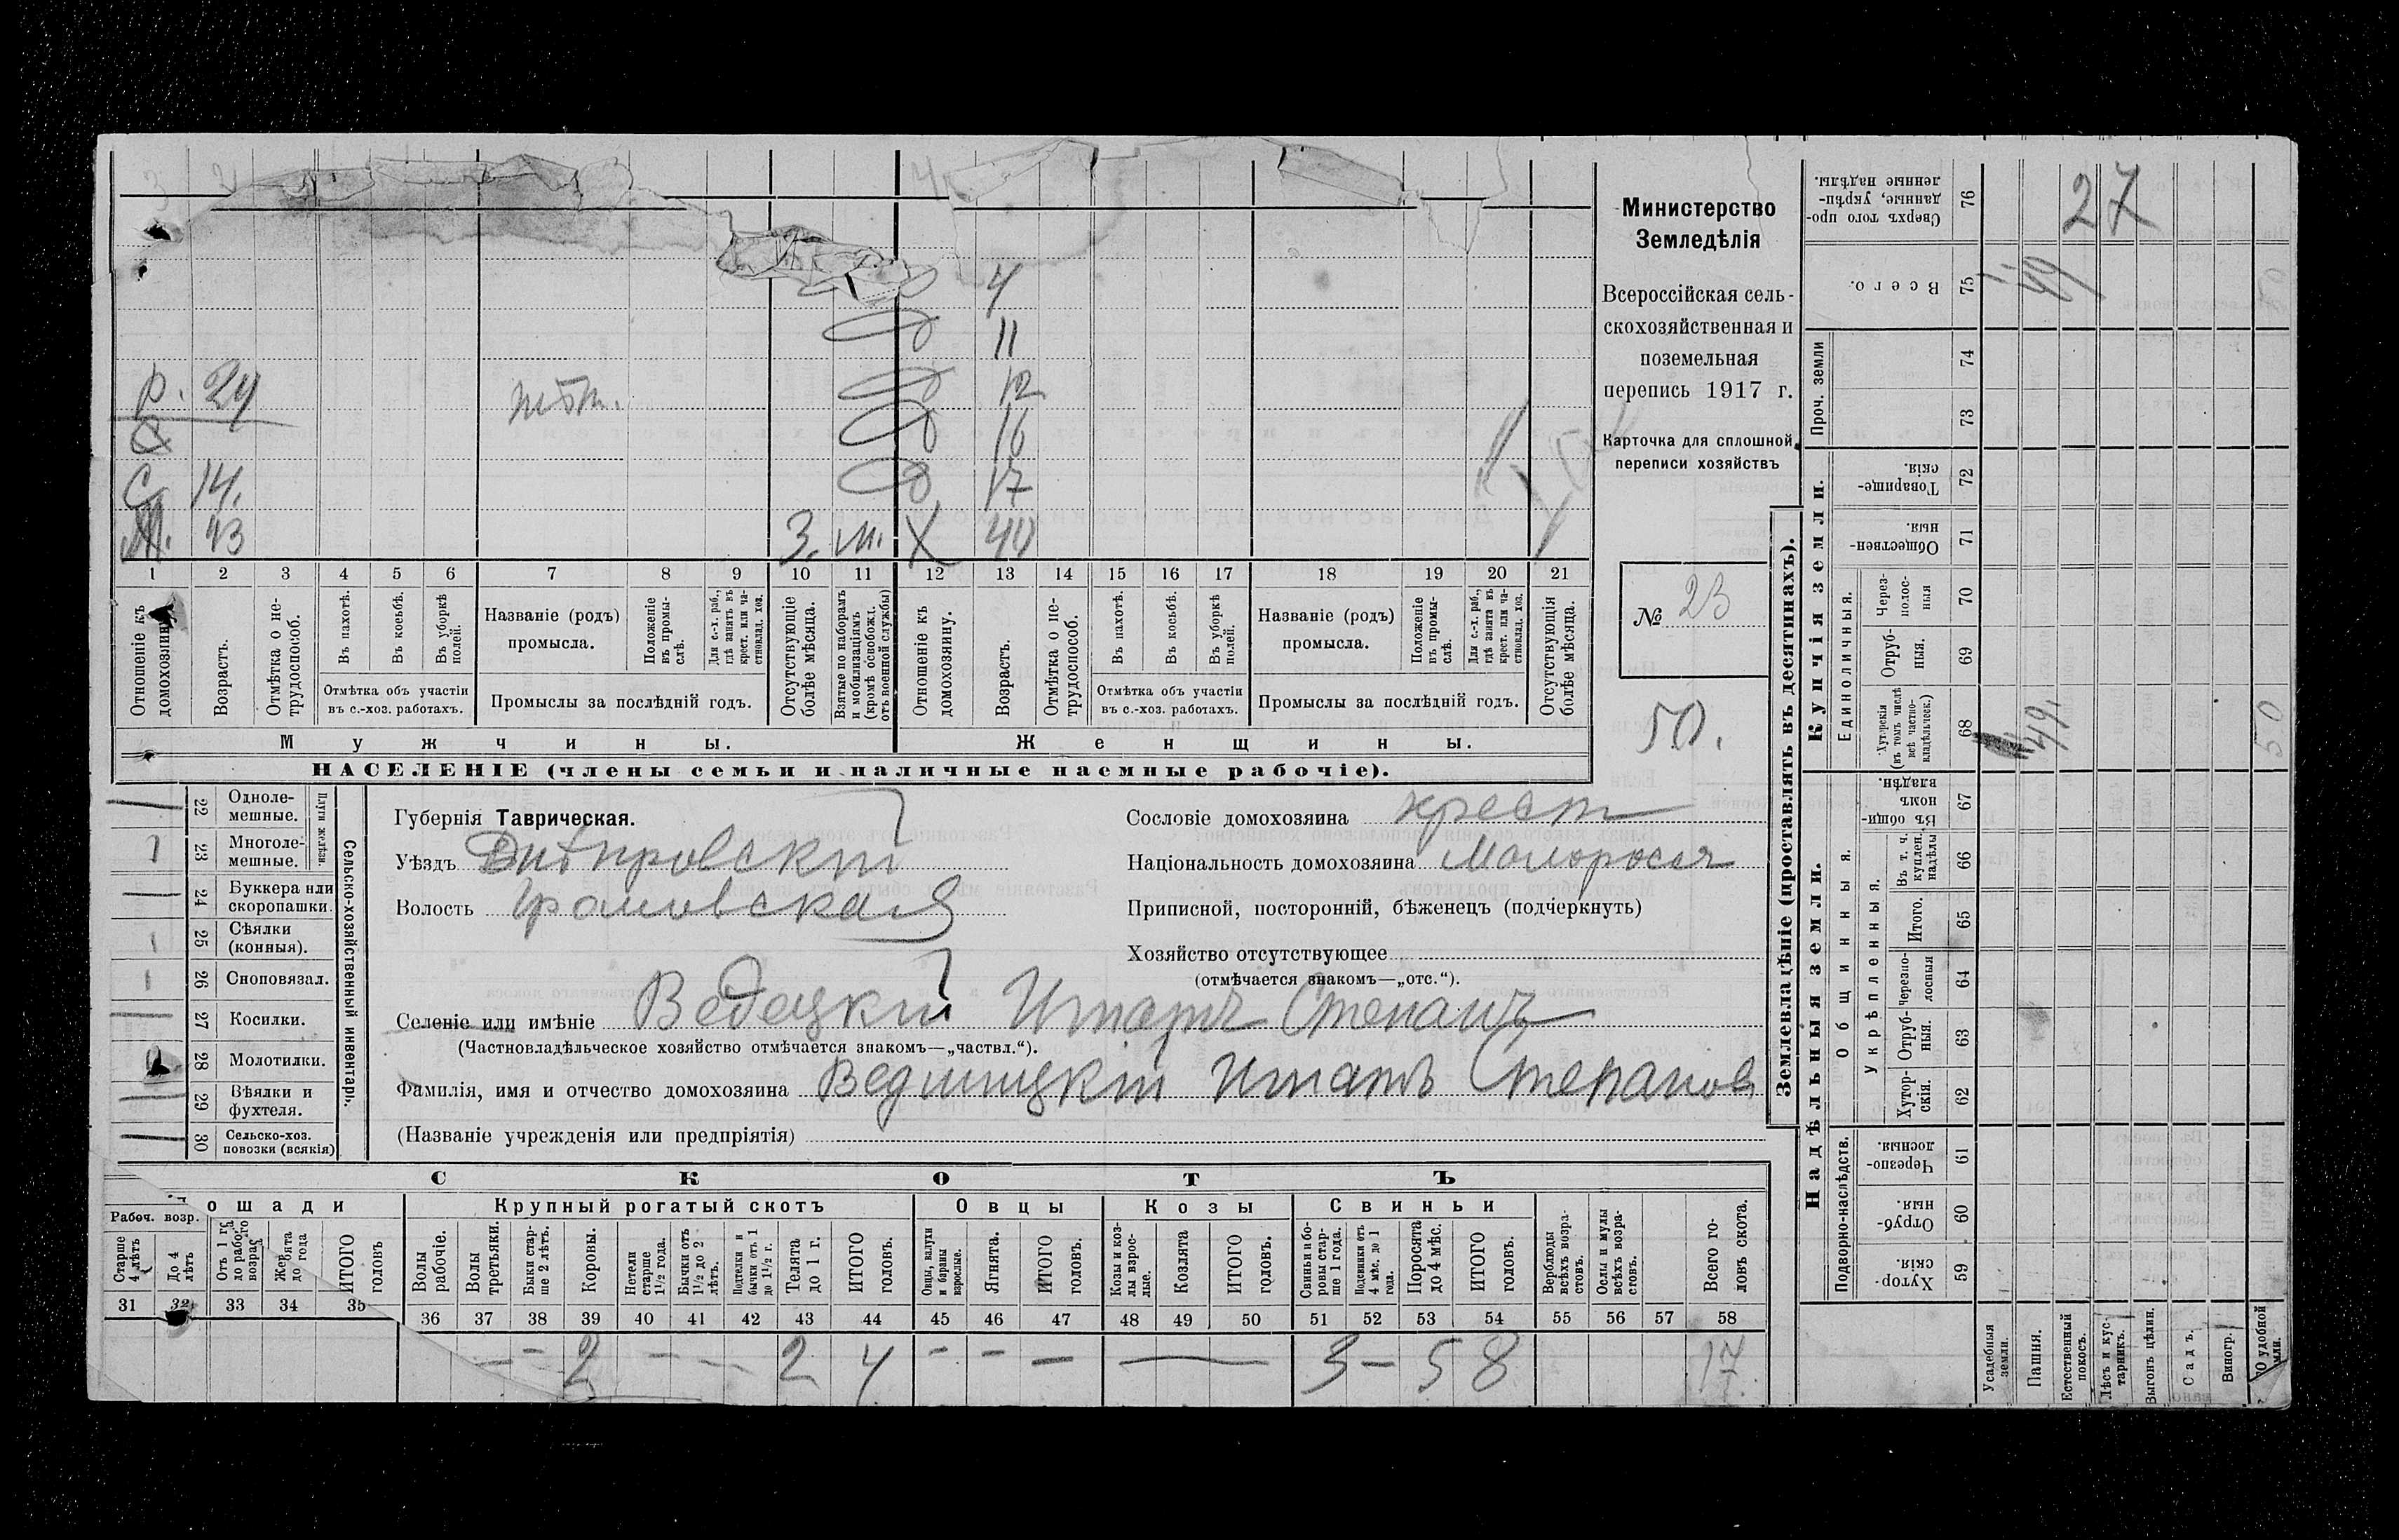 4
11
р. 24 12
16
С 14. 17
43 З. м. Х 40
1 2 3 4 5 6 7 8 9 10 11 12 13 14 15 16 17 18 19 20 21
Отношеніе къ домохозяину.
Возрастъ.
Отмѣтка о не-
трудоспособ.
Въ пахотѣ.
Въ косьбѣ.
Въ уборкѣ
полей.
Отмѣтка объ участіи
въ с.-хоз. работахъ.
Названіе (родъ)
промысла.
Положеніе
въ промы-
слѣ.
Для с.-х. раб.,
гдѣ занятъ въ
крест. или ча-
стновлад. хоз.
Промыслы за послѣдній годъ.
Отсутствующіе
болѣе мѣсяца.
Взятые по наборамъ
и мобилизаціямъ
(кромѣ освобожд.
отъ военной службы)
Отношеніе къ
домохозяину.
Возрастъ.
Отмѣтка о не-
трудоспособ.
Въ пахотѣ.
Въ косьбѣ.
Въ уборкѣ
полей.
Отмѣтка объ участіи
въ с.-хоз. работахъ.
Названіе (родъ)
промысла.
Положеніе
въ промы-
слѣ.
Для с.-х. раб.,
гдѣ занята въ
крест. или ча-
стновлад. хоз.
Промыслы за послѣдній годъ.
Отсутствующія
болѣе мѣсяца.
Мужчины. Женщины.
НАСЕЛЕНІЕ (члены семьи и наличные наемные рабочіе).
Министерство
Земледѣлія
Всероссійская сель-
скохозяйственная и
поземельная
перепись 1917 г.
Карточка для сплошной
переписи хозяйствъ
№ 23
50.
22 Одноле-
мешные.
23 Многоле-
мешные.
Плуги желѣзн.
24 Буккера или
скоропашки.
25 Сѣялки
(конныя).
26 Сноповязал.
27 Косилки.
28 Молотилки.
29 Вѣялки и
фухтеля.
30 Сельско-хоз.
повозки (всякія)
Сельско-хозяйственный инвентарь.
Губернія Таврическая.
Уѣздъ Днѣпровскій
Волость Громовская
Селеніе или имѣніе Ведецкій Игнатъ Степанъ
(Частновладѣльческое хозяйство отмѣчается знакомъ—„частвл.“).
Фамилія, имя и отчество домохозяина Ведмицкій Игнатъ Степановъ
(Названіе учрежденія или предпріятія)
Сословіе домохозяина крест
Національность домохозяина Малоросся
Приписной, посторонній, бѣженецъ (подчеркнуть)
Хозяйство отсутствующее
(отмѣчается знакомъ—„отс.“).
СКОТЪ
ошади
Рабоч. возр.
Старше
4 лѣтъ
До 4
лѣтъ
Жеребята
до года
ИТОГО
головъ
Крупный рогатый скотъ
Волы
рабочіе.
Волы
третьяки.
Быки стар-
ше 2 лѣтъ.
Коровы.
Нетели
старше
1½ года.
Бычки отъ
1½ до 2
лѣтъ.
Подтелки и
бычки отъ 1
до 1½ г.
Телята
до 1 г.
ИТОГО
головъ.
Овцы
Овцы, валухи
и бараны
взрослые.
Ягнята.
ИТОГО
головъ.
Козы
Козы и коз-
лы взрос-
лые.
Козлята
ИТОГО
головъ.
Свиньи
Свиньи и бо-
ровы стар-
ше 1 года.
Подсвинки отъ
4 мѣс. до 1
года.
Поросята
до 4 мѣс.
ИТОГО
головъ.
Верблюды
всѣхъ возра-
стовъ.
Ослы и мулы
всѣхъ возра-
стовъ.
Всего го-
ловъ скота.
31 32 33 34 35 36 37 38 39 40 41 42 43 44 45 46 47 48 49 50 51 52 53 54 55 56 57 58
— — 2 — — 2 4 — — — — 3 — 5 8 17
Землевладѣніе (проставлять въ десятинахъ).
Купчія земли.
Надѣльныя земли.
Сверхъ того про-
данные, укрѣп-
ленные надѣлы.
76 27
Всего.
75 49
Проч. земли
74
73
Товарище-
скія.
72
Обществен-
ныя.
71
Единоличныя.
Через-
полос-
ныя
70
Отруб-
ныя.
69
Хуторскія
(въ томъ числѣ
всѣ частно-
владѣльческ.)
68 49. 50
Общинныя.
Въ общи-
номъ
владѣн.
67
Укрѣпленныя.
Въ т. ч.
куплен.
надѣлы
66
Итого.
65
Черезпо-
лосныя
64
Отруб-
ныя.
63
Хутор-
скія.
62
Подворно-наслѣдств.
Черезпо-
лосныя.
61
Отруб-
ныя.
60
Хутор-
скія.
59
Усадебныя
земли.
Пашня.
Естественный
покосъ.
Лѣсъ и кус-
тарникъ.
Выгонъ цѣлин.
Садъ.
Виногр.
О удобной